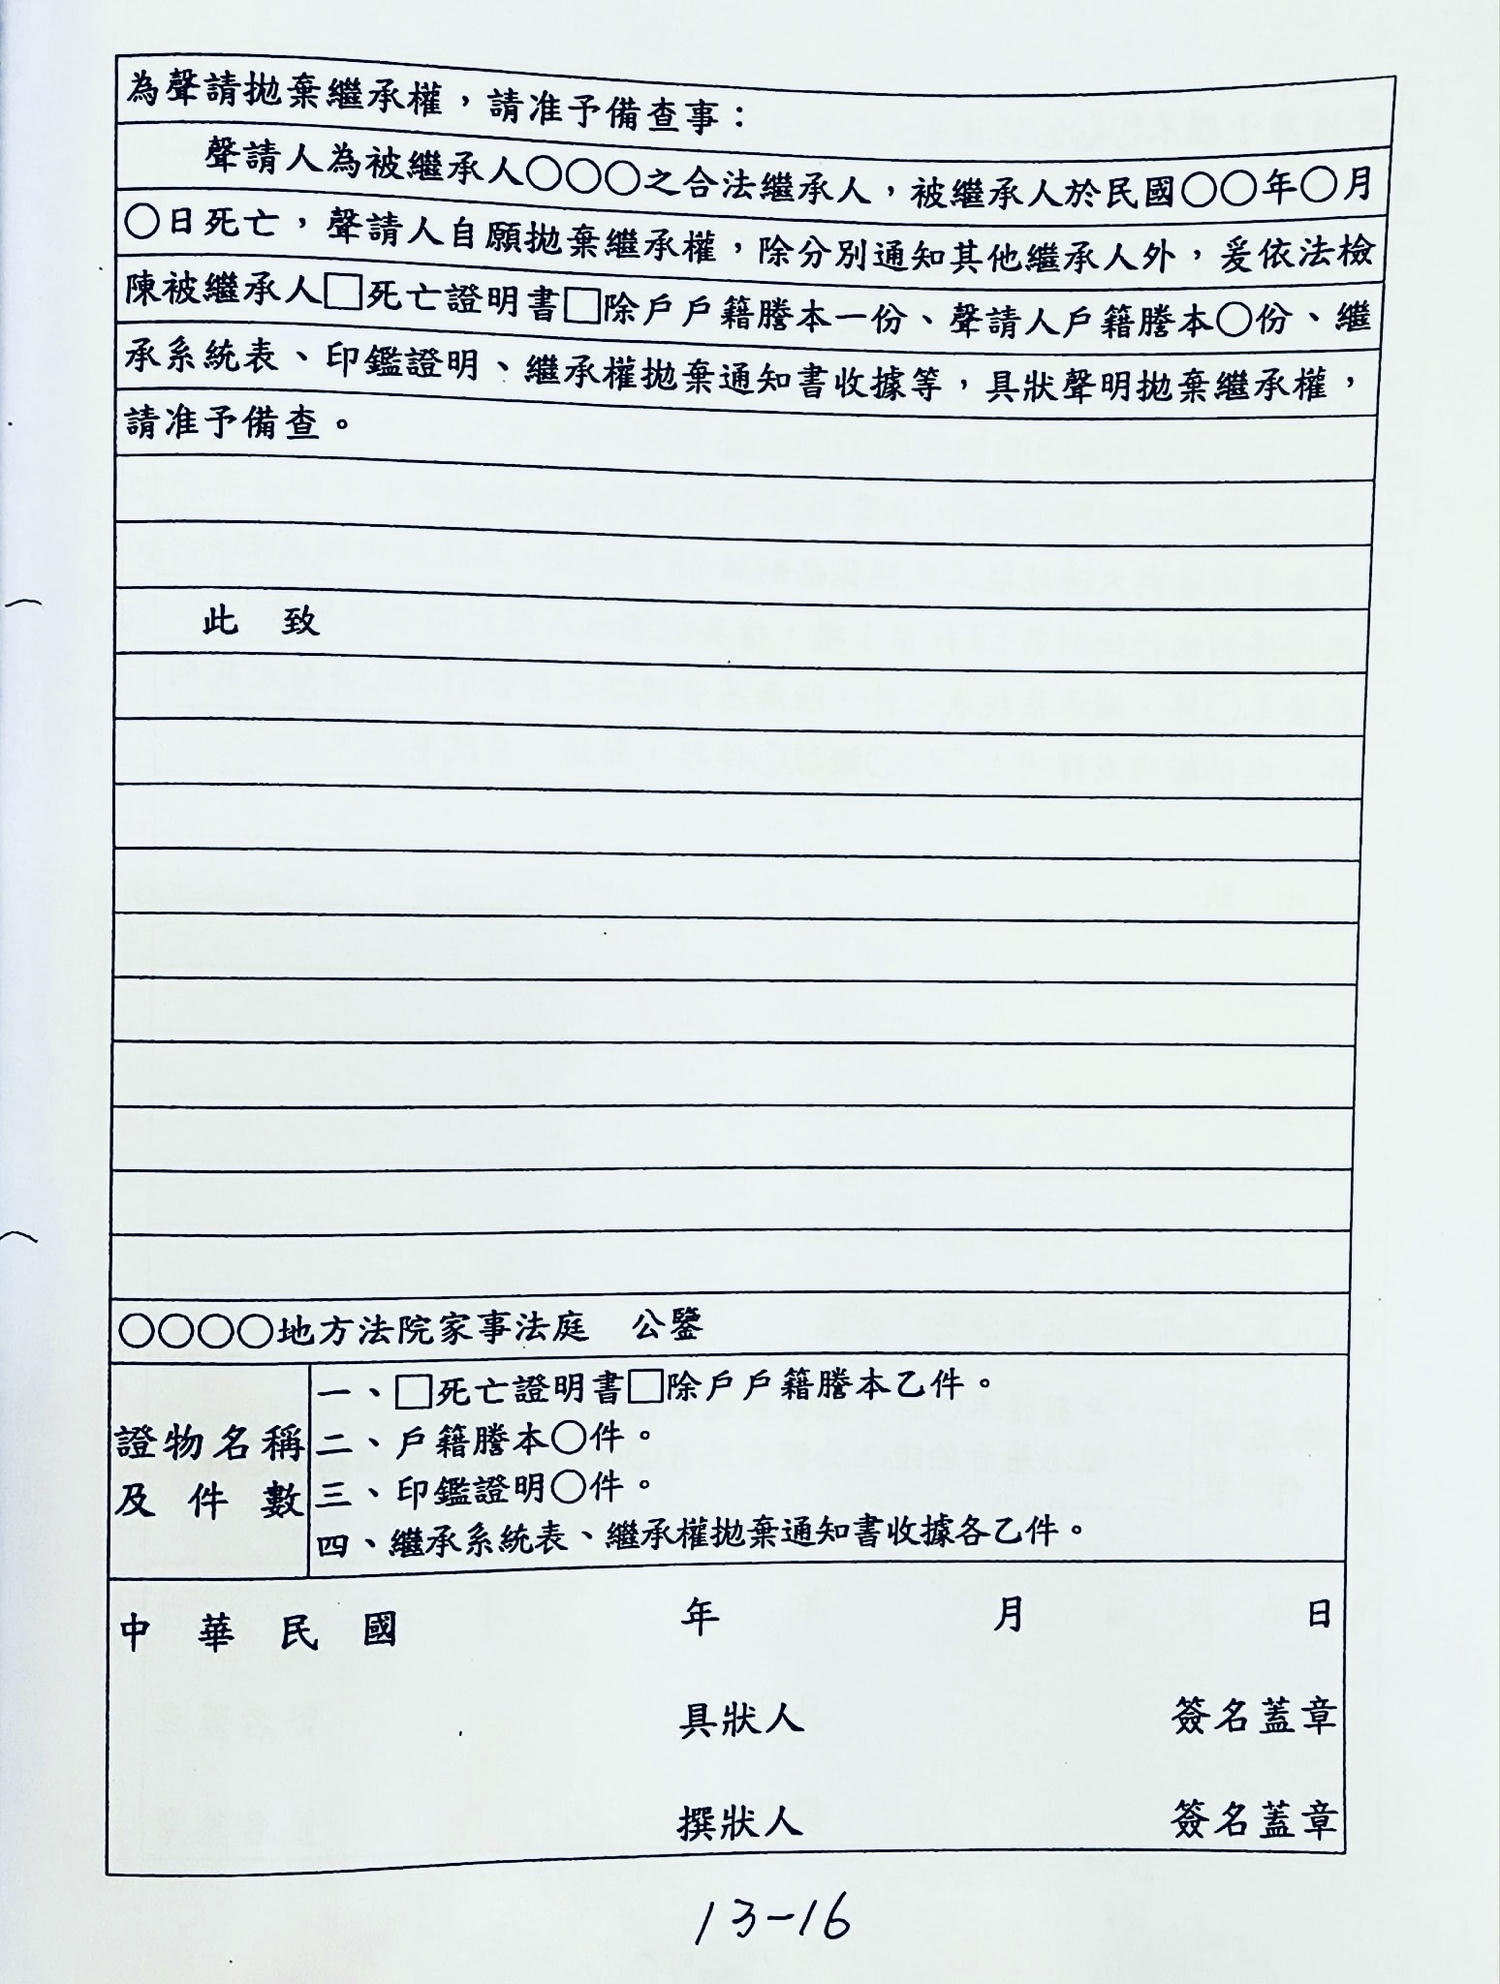 為聲請拋棄繼承權，請准予備查事：
聲請人為被繼承人○○○之合法繼承人，被繼承人於民國○○年○月
○日死亡，聲請人自願拋棄繼承權，除分別通知其他繼承人外，爰依法檢
陳被繼承人□死亡證明書□除戶戶籍謄本一份、聲請人戶籍謄本○份、繼
承系統表、印鑑證明、繼承權拋棄通知書收據等，具狀聲明拋棄繼承權，
請准予備查。
此　致
○○○○地方法院家事法庭　公鑒
證物名稱
及件數
一、□死亡證明書□除戶戶籍謄本乙件。
二、戶籍謄本○件。
三、印鑑證明○件。
四、繼承系統表、繼承權拋棄通知書收據各乙件。
中華民國　年　月　日
具狀人　簽名蓋章
撰狀人　簽名蓋章
13-16